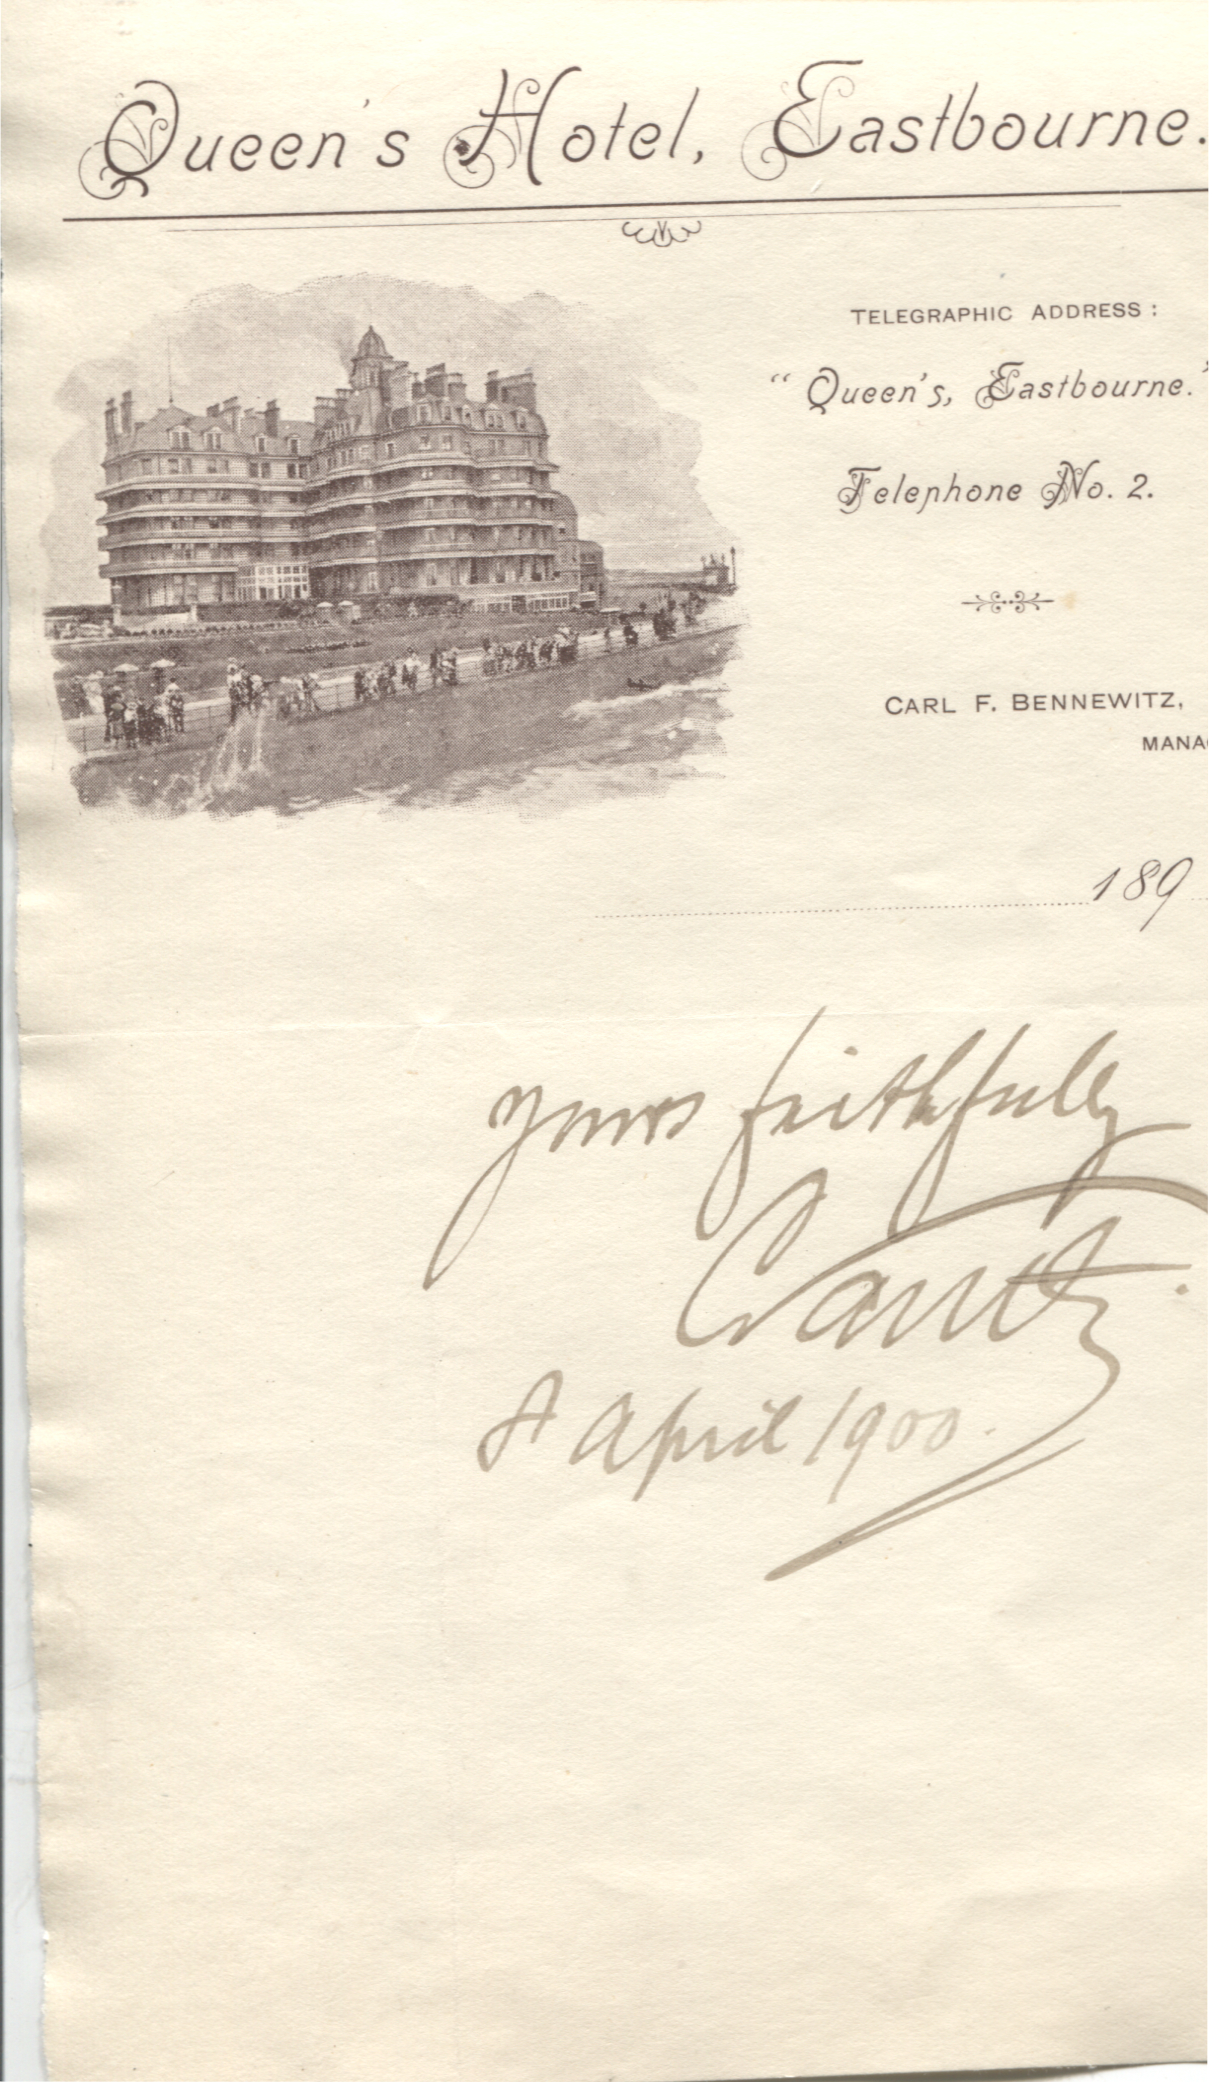 Queen's Hotel, Eastbourne.
TELEGRAPHIC ADDRESS:
"Queen's, Eastbourne."
Telephone No. 2.
CARL F. BENNEWITZ,
MANAG
189
yours faithfully
April 1900.